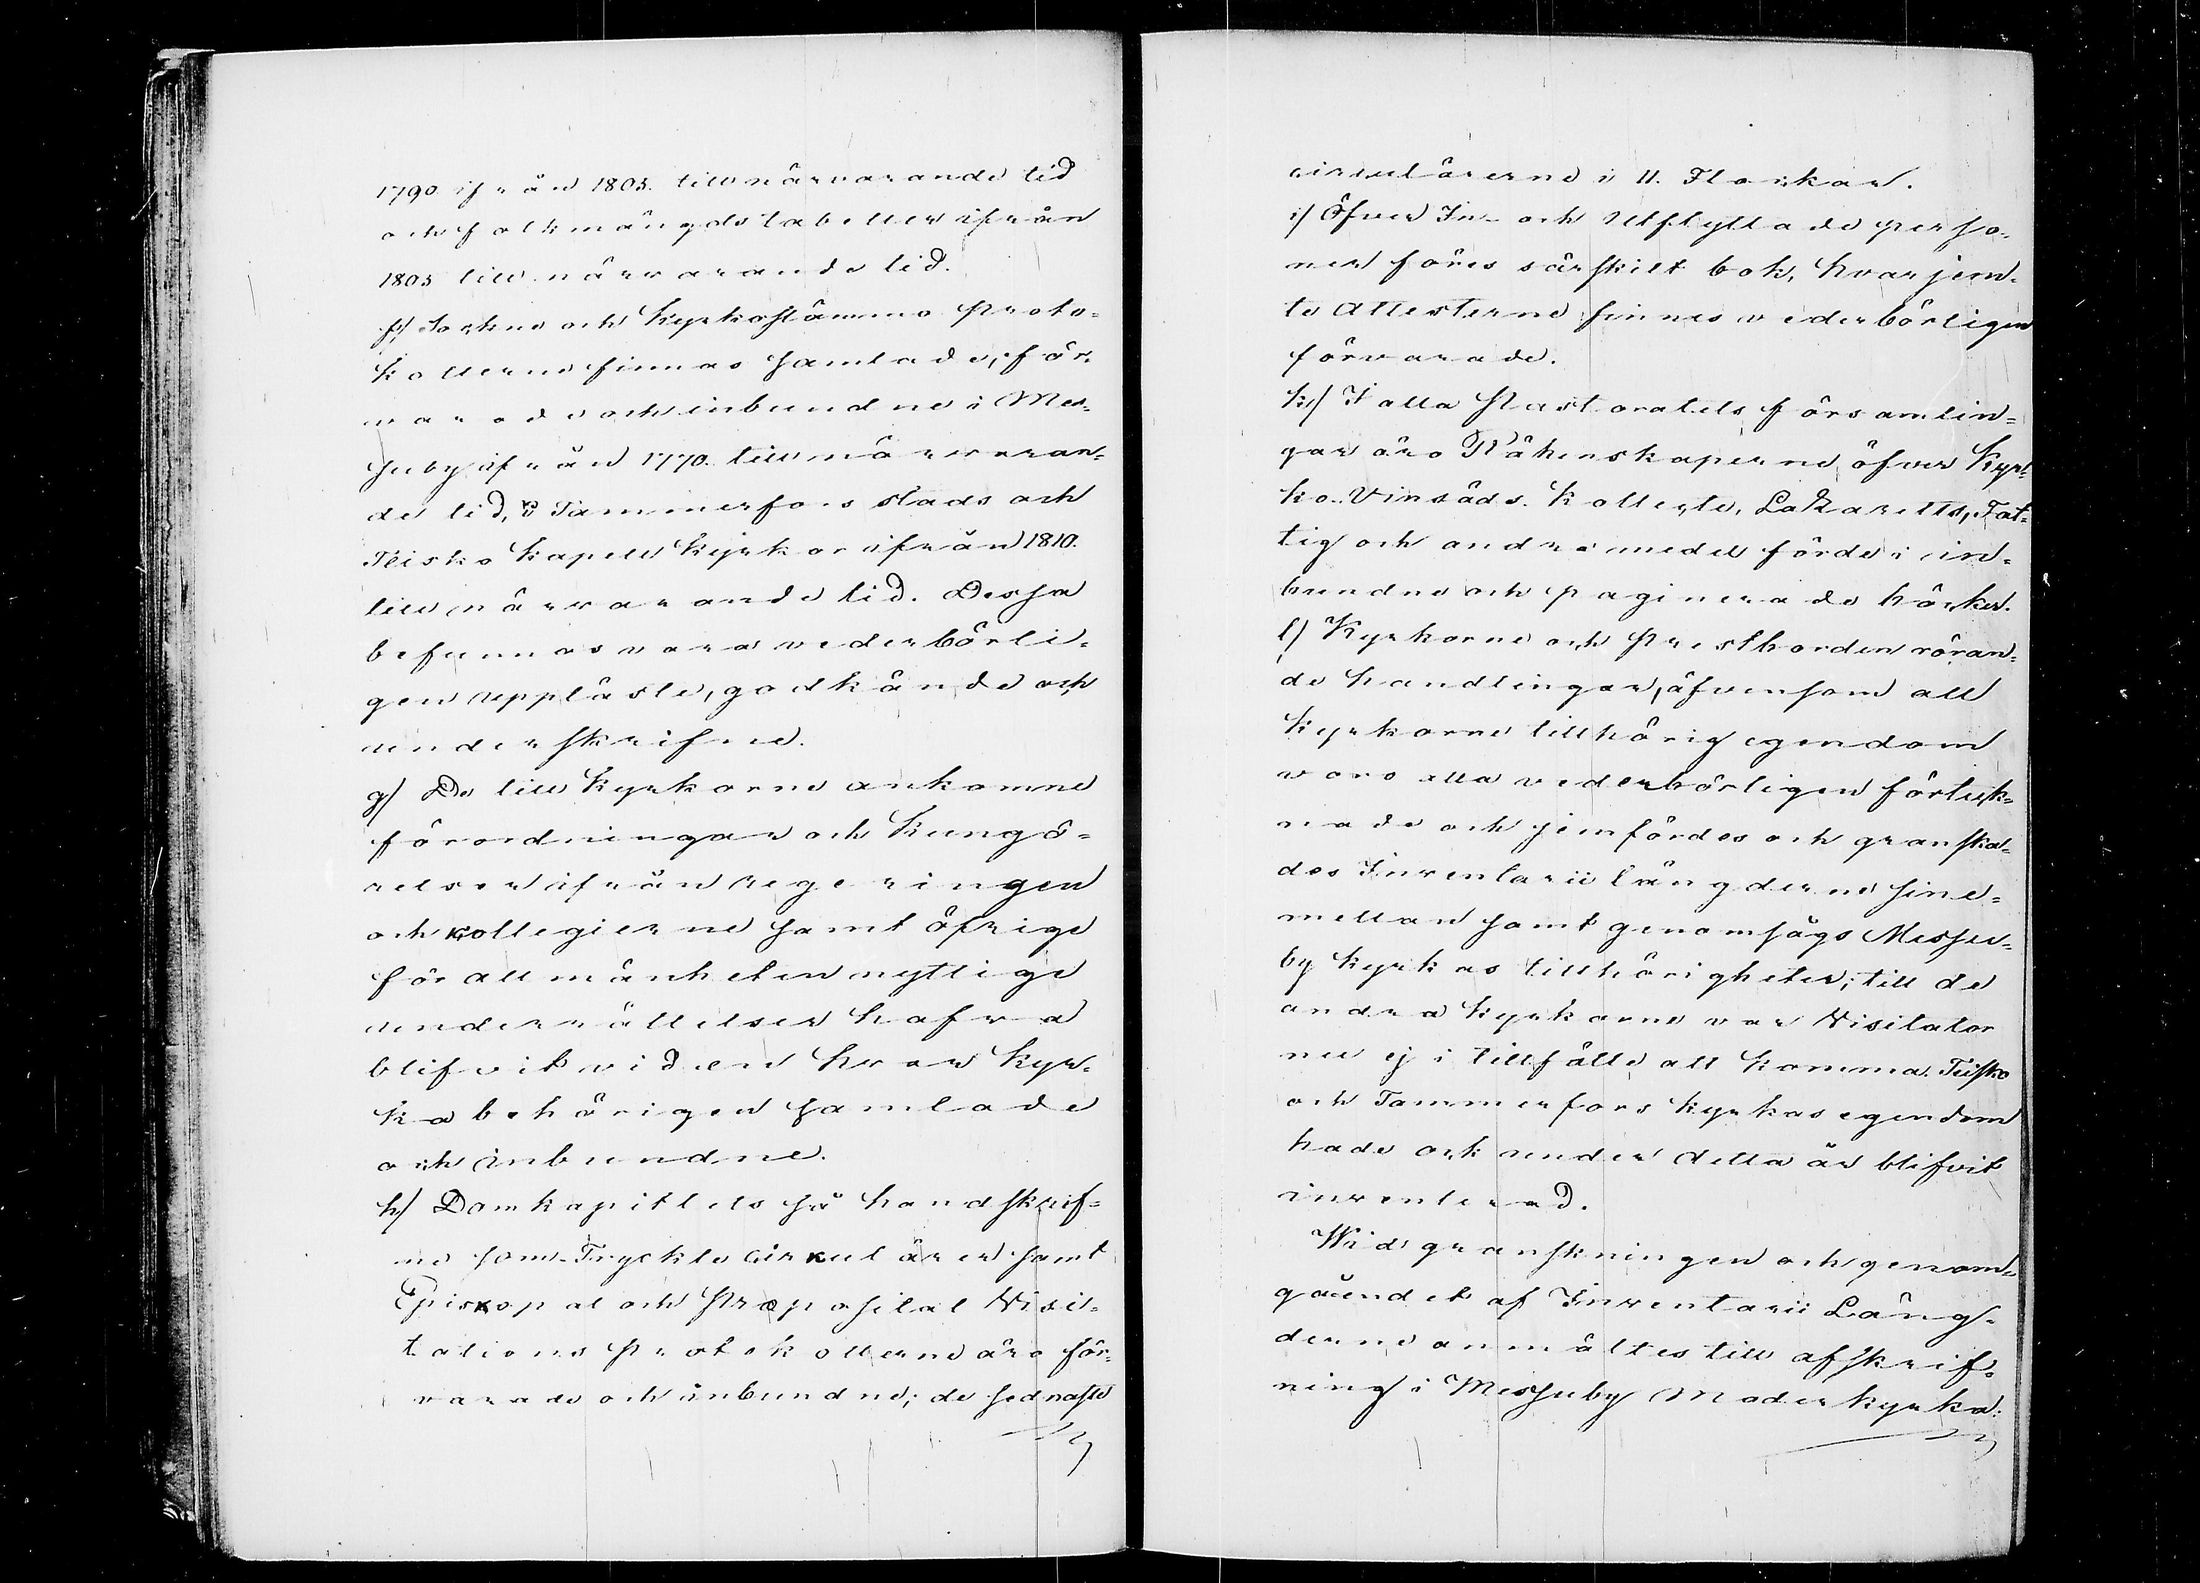 1790 ifrån 1805. till närvarande tid
och folkmängds tabeller ifrån
1805 till närvarande tid.
f/ Sockne och Kyrkostämmo Proto-
kollerne finnas samlade, för-
varade och inbundne i Mes-
suby ifrån 1770. till närvaran-
de tid, i Tammerfors stads och
Teisko Kapell Kyrkor ifrån 1810.
till närvarande tid. Dessa
befunnos vara vederbörli-
gen uppläste, godkände och
underskrifne.
g/ De till Kyrkorne ankomne
förordningar och Kungö-
relser ifrån regeringen
och Kollegierne samt öfrige
för allmänheten nyttige
underrättelser hafva
blifvit vid en hvar Kyr-
ka behörigen samlade
och inbundne.
h/ Domkapitlets så handskrif-
ne som Tryckte cirkulärer samt
Episkopal och Præposital Visi-
tations Protokollerne äro för-
varade och inbundne; de sednaste
cirkulärerne i 11. Flockar.
i/ Öfver In- och Utflyttade perso-
ner föres särskilt bok, hvarjem-
te Attesterne finnes vederbörligen
förvarade.
k/ I alla Pastoratets församlin-
gar äro Räkenskaperne öfver Kyr-
ko- Vinsäds- Kollekte, Lazaretts, Fat-
tig och andre medel förde i in-
bundne och paginerade böcker.
l/ Kyrkorne och Prestborden röran-
de handlingar, äfvensom all
Kyrkorne tillhörig egendom
voro alla vederbörligen förteck-
nade och jemfördes och granska-
des Inventarii längderne sine-
mellan samt genomsågs Messu-
by Kyrkas tillhörigheter; till de
andra Kyrkorne var Visitator
nu ej i tillfälle att komma. Teisko
och Tammerfors Kyrkas egendom
hade ock under detta år blifvit
inventerad.
Wid granskningen och genom-
gåendet af Inventarii Läng-
derne anmältes till afskrif-
ning i Messuby Moderkyrka: